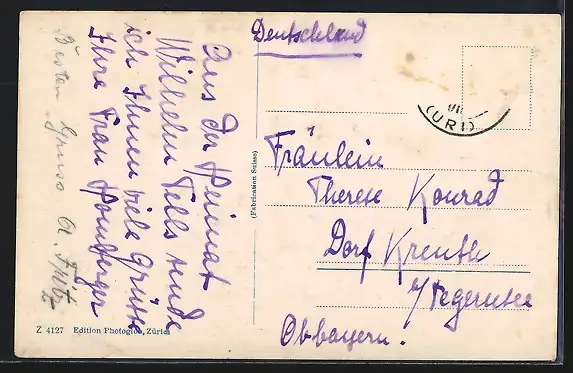 Deutschland
Aus der Heimat
Wilhelm Tells sende
ich Ihnen viele Grüsse
Ihre Frau Homberger
Besten Gruss A. Fritz
(URI)
Fräulein
Therese Konrad
Dorf Kreuth
a/Tegernsee
Obbayern.
(Fabrication Suisse)
Z 4127 Edition Photoglob, Zürich